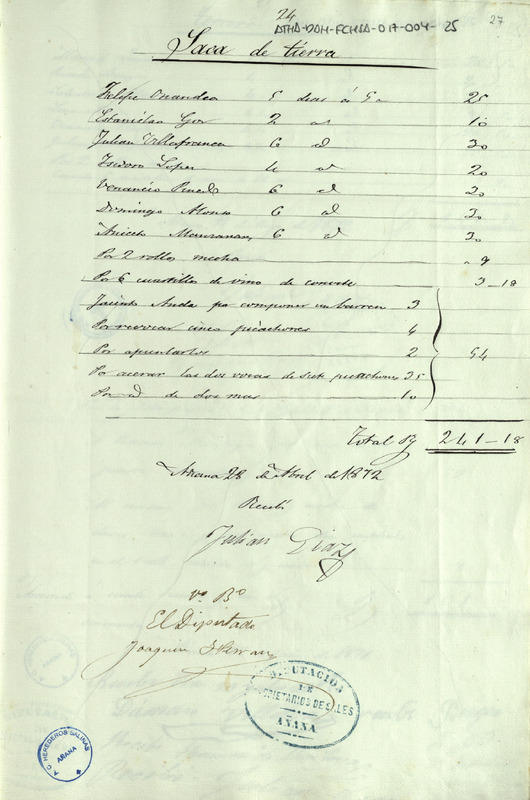 24
ATHA-DAH-FCHSA-017-004-25
27
Saca de tierra
Felipe Onandea 5 dias á 5 25
Estanislao Gor 2 id 10
Julian Villafranca 6 id 30
Isidoro Lopez 4 id 20
Venancio Pinedo 6 id 30
Domingo Alonso 6 id 30
Aniceto Manzanan 6 id 30
Por 2 rollos mecha 9
Por 6 cuartillos de vino de convite 3-18
Jacinto Anda por componer un barren 3
Por revocar cinco picachones 4
Por apuntarlos 2 54
Por acerar las dos vocas de siete picachones 35
Por id de dos mas 10
Total Rs 241-18
Añana 28 de Abril de 1872
Recibi
Julian Diaz
Vº Bº
El Diputado
Joaquin Herran
DIPUTACION
DE
PROPIETARIOS DE SALES
AÑANA
A.C. HEREDEROS SALINAS
AÑANA